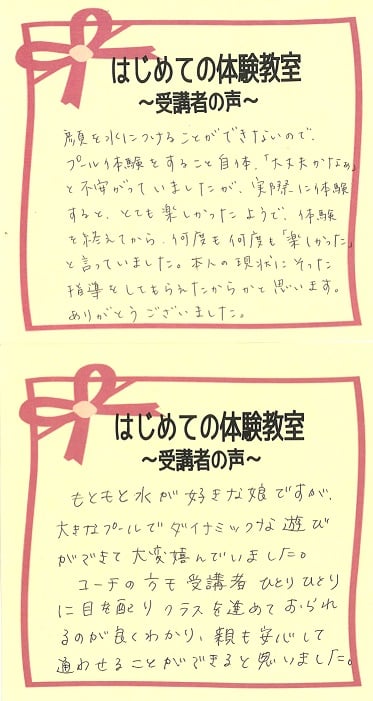 はじめての体験教室
～受講者の声～
顔を水につけることができないので、
プール体験をすること自体、「大丈夫かなぁ」
と不安がっていましたが、実際に体験
すると、とても楽しかったようで、体験
を終えてから、何度も何度も「楽しかった」
と言っていました。本人の現状にそった
指導をしてもらえたからかと思います。
ありがとうございました。
はじめての体験教室
～受講者の声～
もともと水が好きな娘ですが、
大きなプールでダイナミックな遊び
ができて大変嬉んでいました。
コーチの方も受講者ひとりひとり
に目を配りクラスを進めておられ
るのが良くわかり、親も安心して
通わせることができると思いました。